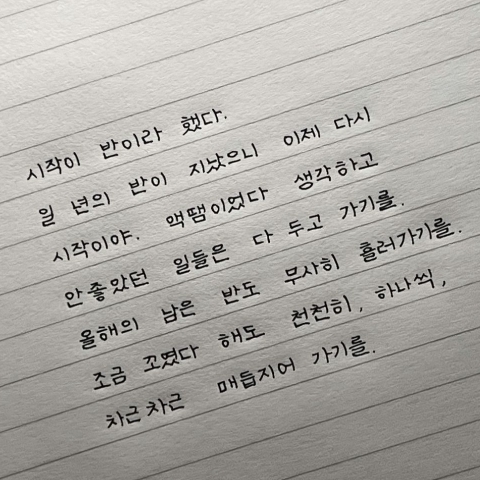 시작이 반이라 했다.
일 년의 반이 지났으니 이제 다시
시작이야. 액땜이었다 생각하고
안좋았던 일들은 다 두고 가기를.
올해의 남은 반도 무사히 흘러가기를.
조금 꼬였다 해도 천천히, 하나씩,
차근차근 매듭지어 가기를.